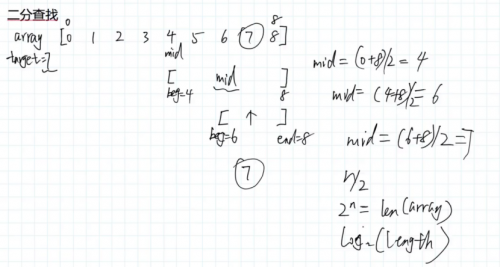 二分查找
0 8
array [0 1 2 3 4 5 6 7 8]
target=7
mid
[ mid ]
beg=4 8
[ ↑ ]
beg=6 end=8
7
mid = (0+8)/2 = 4
mid = (4+8)/2 = 6
mid = (6+8)/2 = 7
n/2
2ⁿ = len(array)
log₂(length)